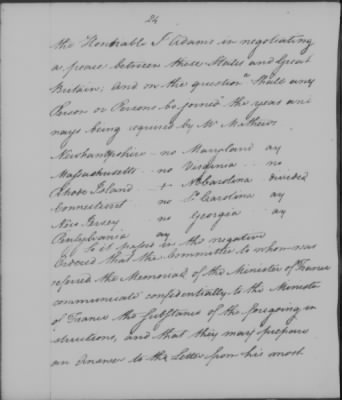 24
the Honorable J Adams in negotiating
a peace between these States and Great
Britain; And on the question "Shall any
Person or Persons be joined the yeas and
nays being required by Mr Mathews
Newhampshire no Maryland ay
Massachusetts no Virginia no
Rhode Island + N Carolina divided
Connecticut no S. Carolina ay
New Jersey no Georgia ay
Penlylvania ay
So it passed in the negative
Ordered that the Committee to whom was
referred the Memorial of the Minister of France
communicate confidentially to the Minister
of France the substance of the foregoing in
structions, and that they may prepare
an Answer to the Letter from his most